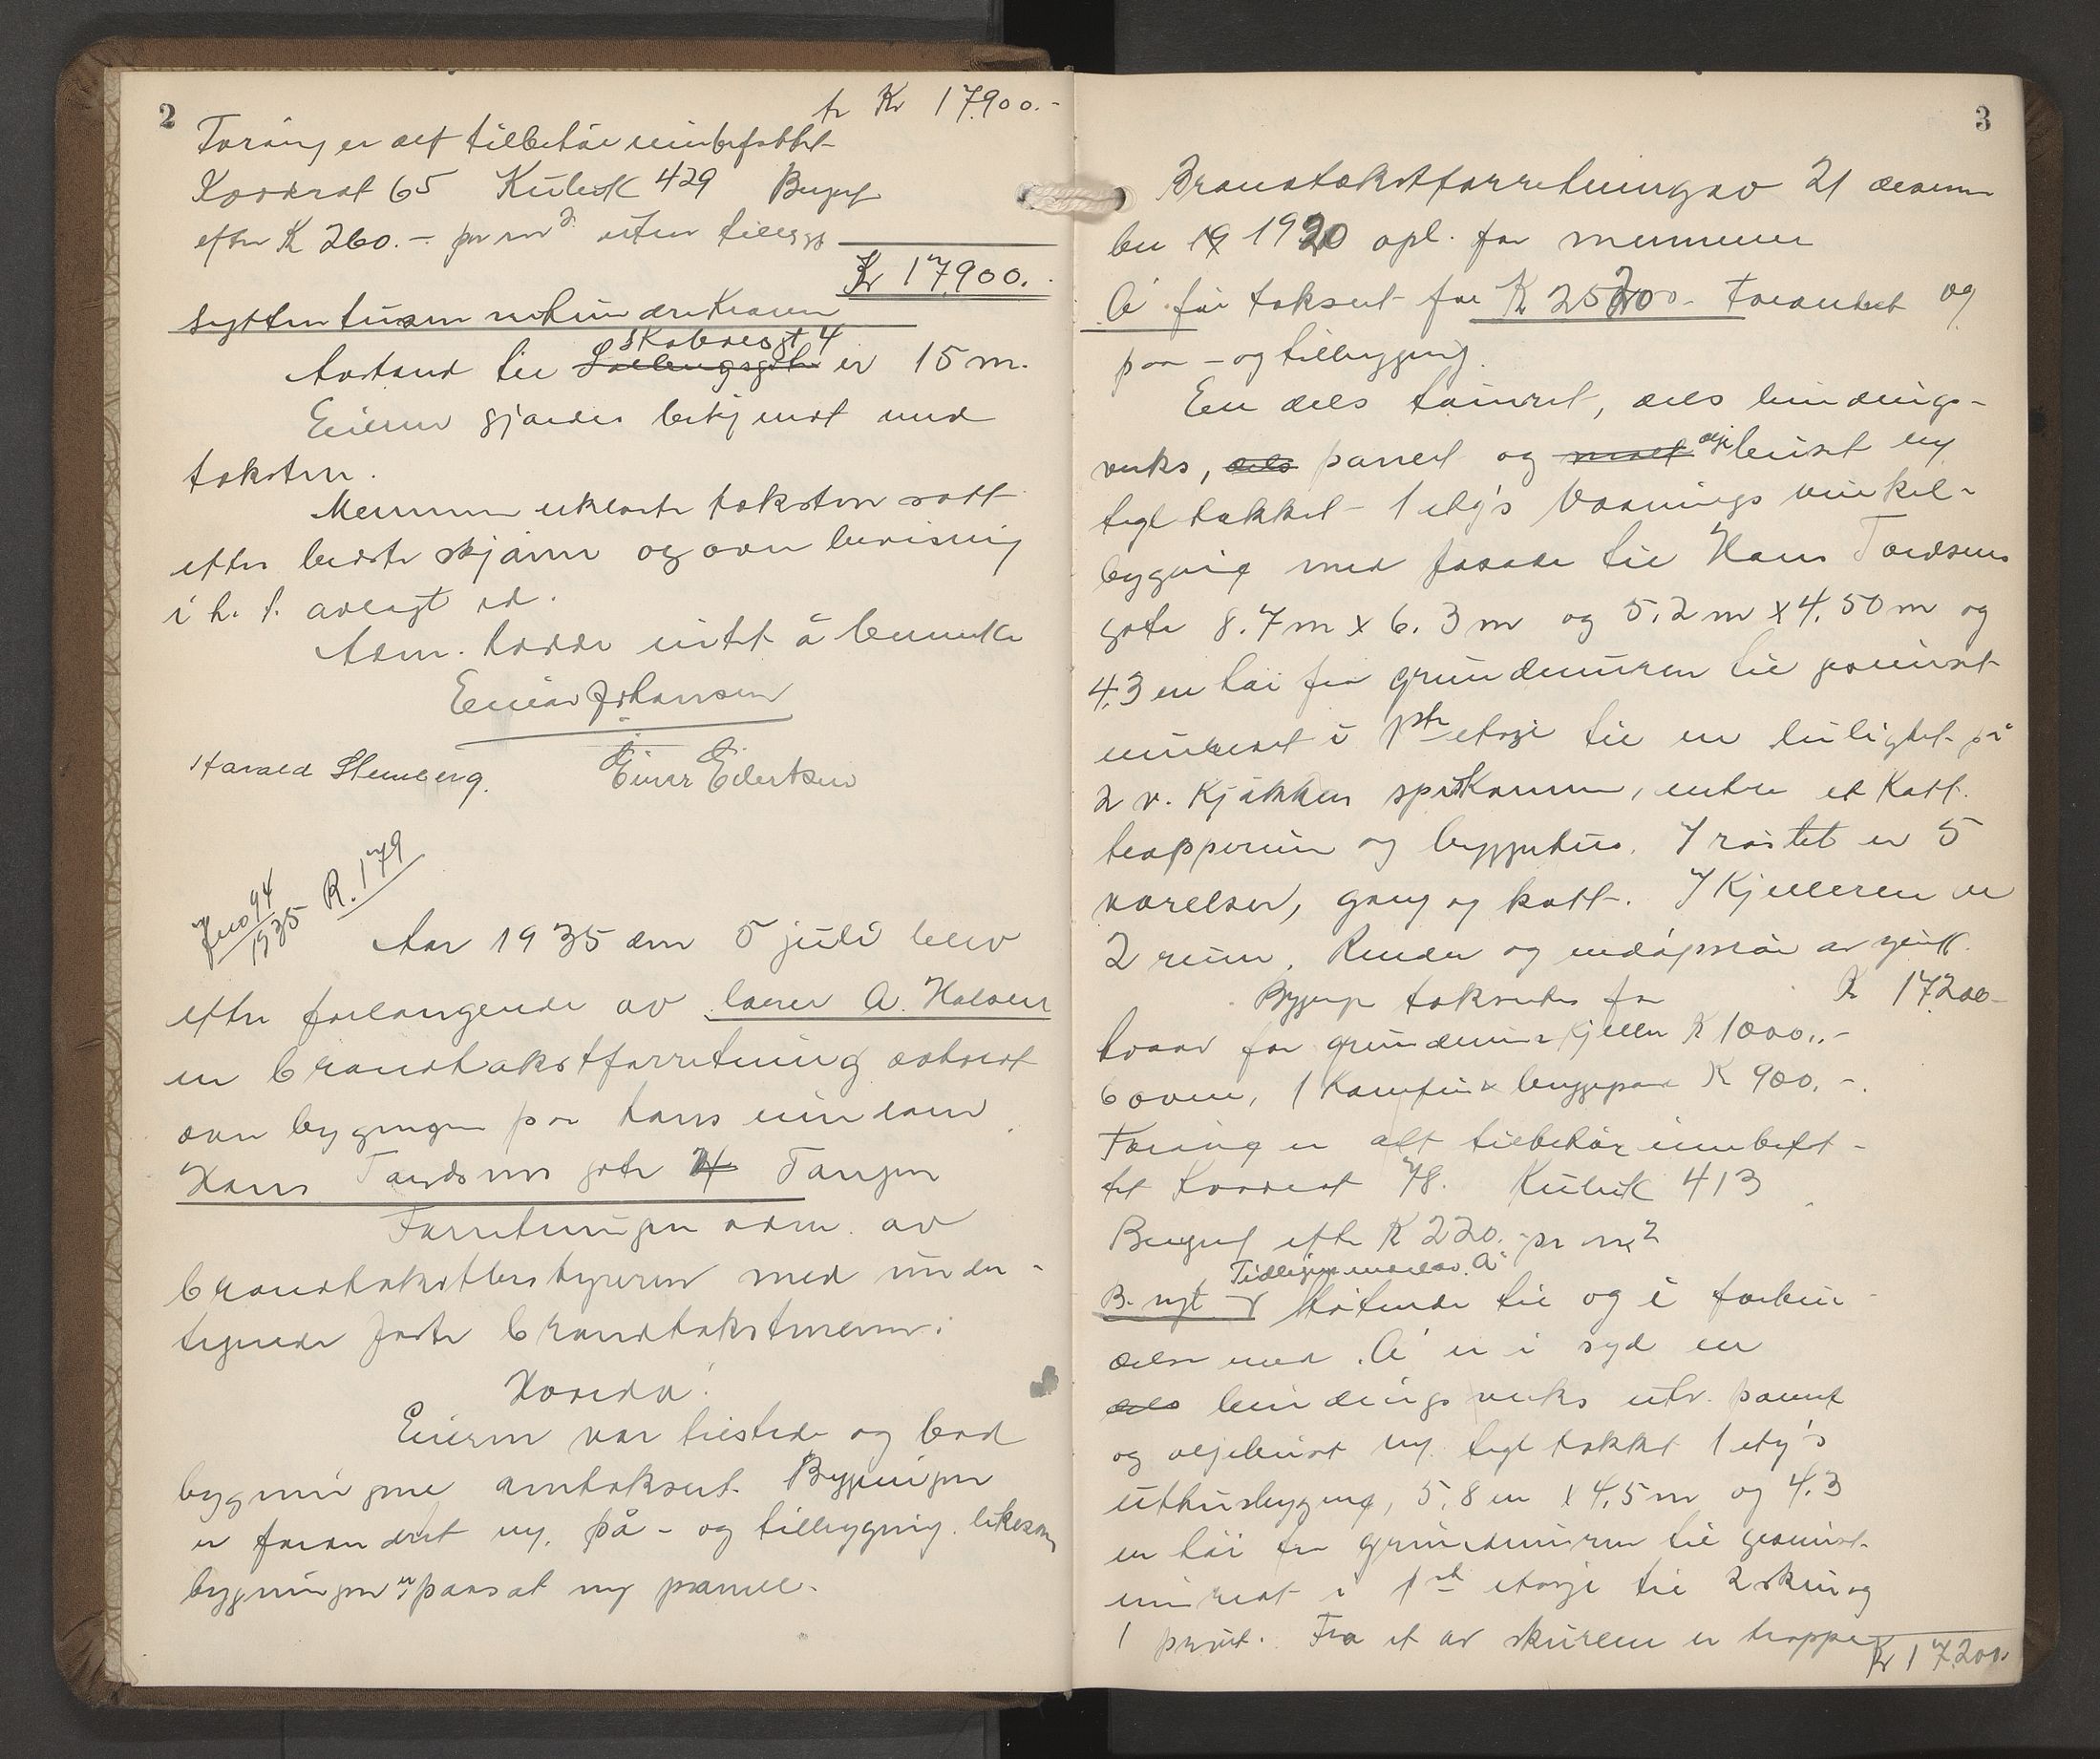 2
fr Kr 17.900.-
Foröving er alt tilbehör innbefattet
Kvadrat 65 Kubik 429 Bereg
efter Kr 260.- pr m² uten tillegg
Kr 17.900.
sytten tusen nihundre kroner
Avstand til Skolnesgt 4 er 15 m.
Eieren gjordes bekjendt med
taksten.
Mennene erklærte taksten satt
efter bedste skjönn og overbevisning
i h. t. avlagt ed.
Adm. hadde intet å bemerke
Einar Johansen
Harald Stenberg. Einar Eilertsen
Jno 94/1935 R. 179
Aar 1935 den 5 juli blev
efter forlangende av lærer A. Halvers
en brandtakstforretning avholdt
over bygningen paa hans eiendom
Hans Tordsens gate 4 Tangen
Forretningen adm. av
brandtakstbestyreren med under-
tegnede faste brandtakstmenn:
Hvorda:
Eieren var tilstede og bad
bygningene omtaksert. Bygningen
er forandret ny. på- og tilbygning. likesom
bygningen er paasat ny panel.
3
Brandtakstforretning av 21 decem
ber 1920 opl. for mennene
A før taksert for Kr 25200.- Forandret og
paa- og tilbygging.
En dels tømret, dels bindings-
verks, panelt og oljebeist ny
tegltakket 1 etg's Vaanings vinkel-
bygning med fasade til Hans Tordsens
gate 8.7 m x 6.3 m og 5.2 m x 4.50 m og
4.3 m höi fra grundmuren til gesimset
innredet i 1ste etage til en leilighet på
2 v. Kjökken spiskammer, entre et Kott.
trapperum og bryggehus. I röstet er 5
værelser, gang og kott. I Kjelleren er
2 rum. Render og nedlöpsrör av zink.
Bygnge takseres for Kr 17200-
hvorav for grundmur & kjeller Kr 1000.-
6 ovner, 1 Komfur & bryggepanne Kr 900.-
Foröving er alt tilbehör innbefat-
tet Kvadrat 78. Kubik 413
Beregnet efter Kr 220.- pr m²
Tidligere under A
B. nyt Stötende til og i forbin-
delse med A er i syd en
dels bindingsverks utv. panelt
og oljebeist ny tegltakket 1 etg's
uthusbygning, 5.8 m x 4.5 m og 4.3
m höi fra grundmuren til gesimset
innredet i 1ste etage til 2 skur og
1 privet. Fra et av skurene er trappe
Kr 17.200.